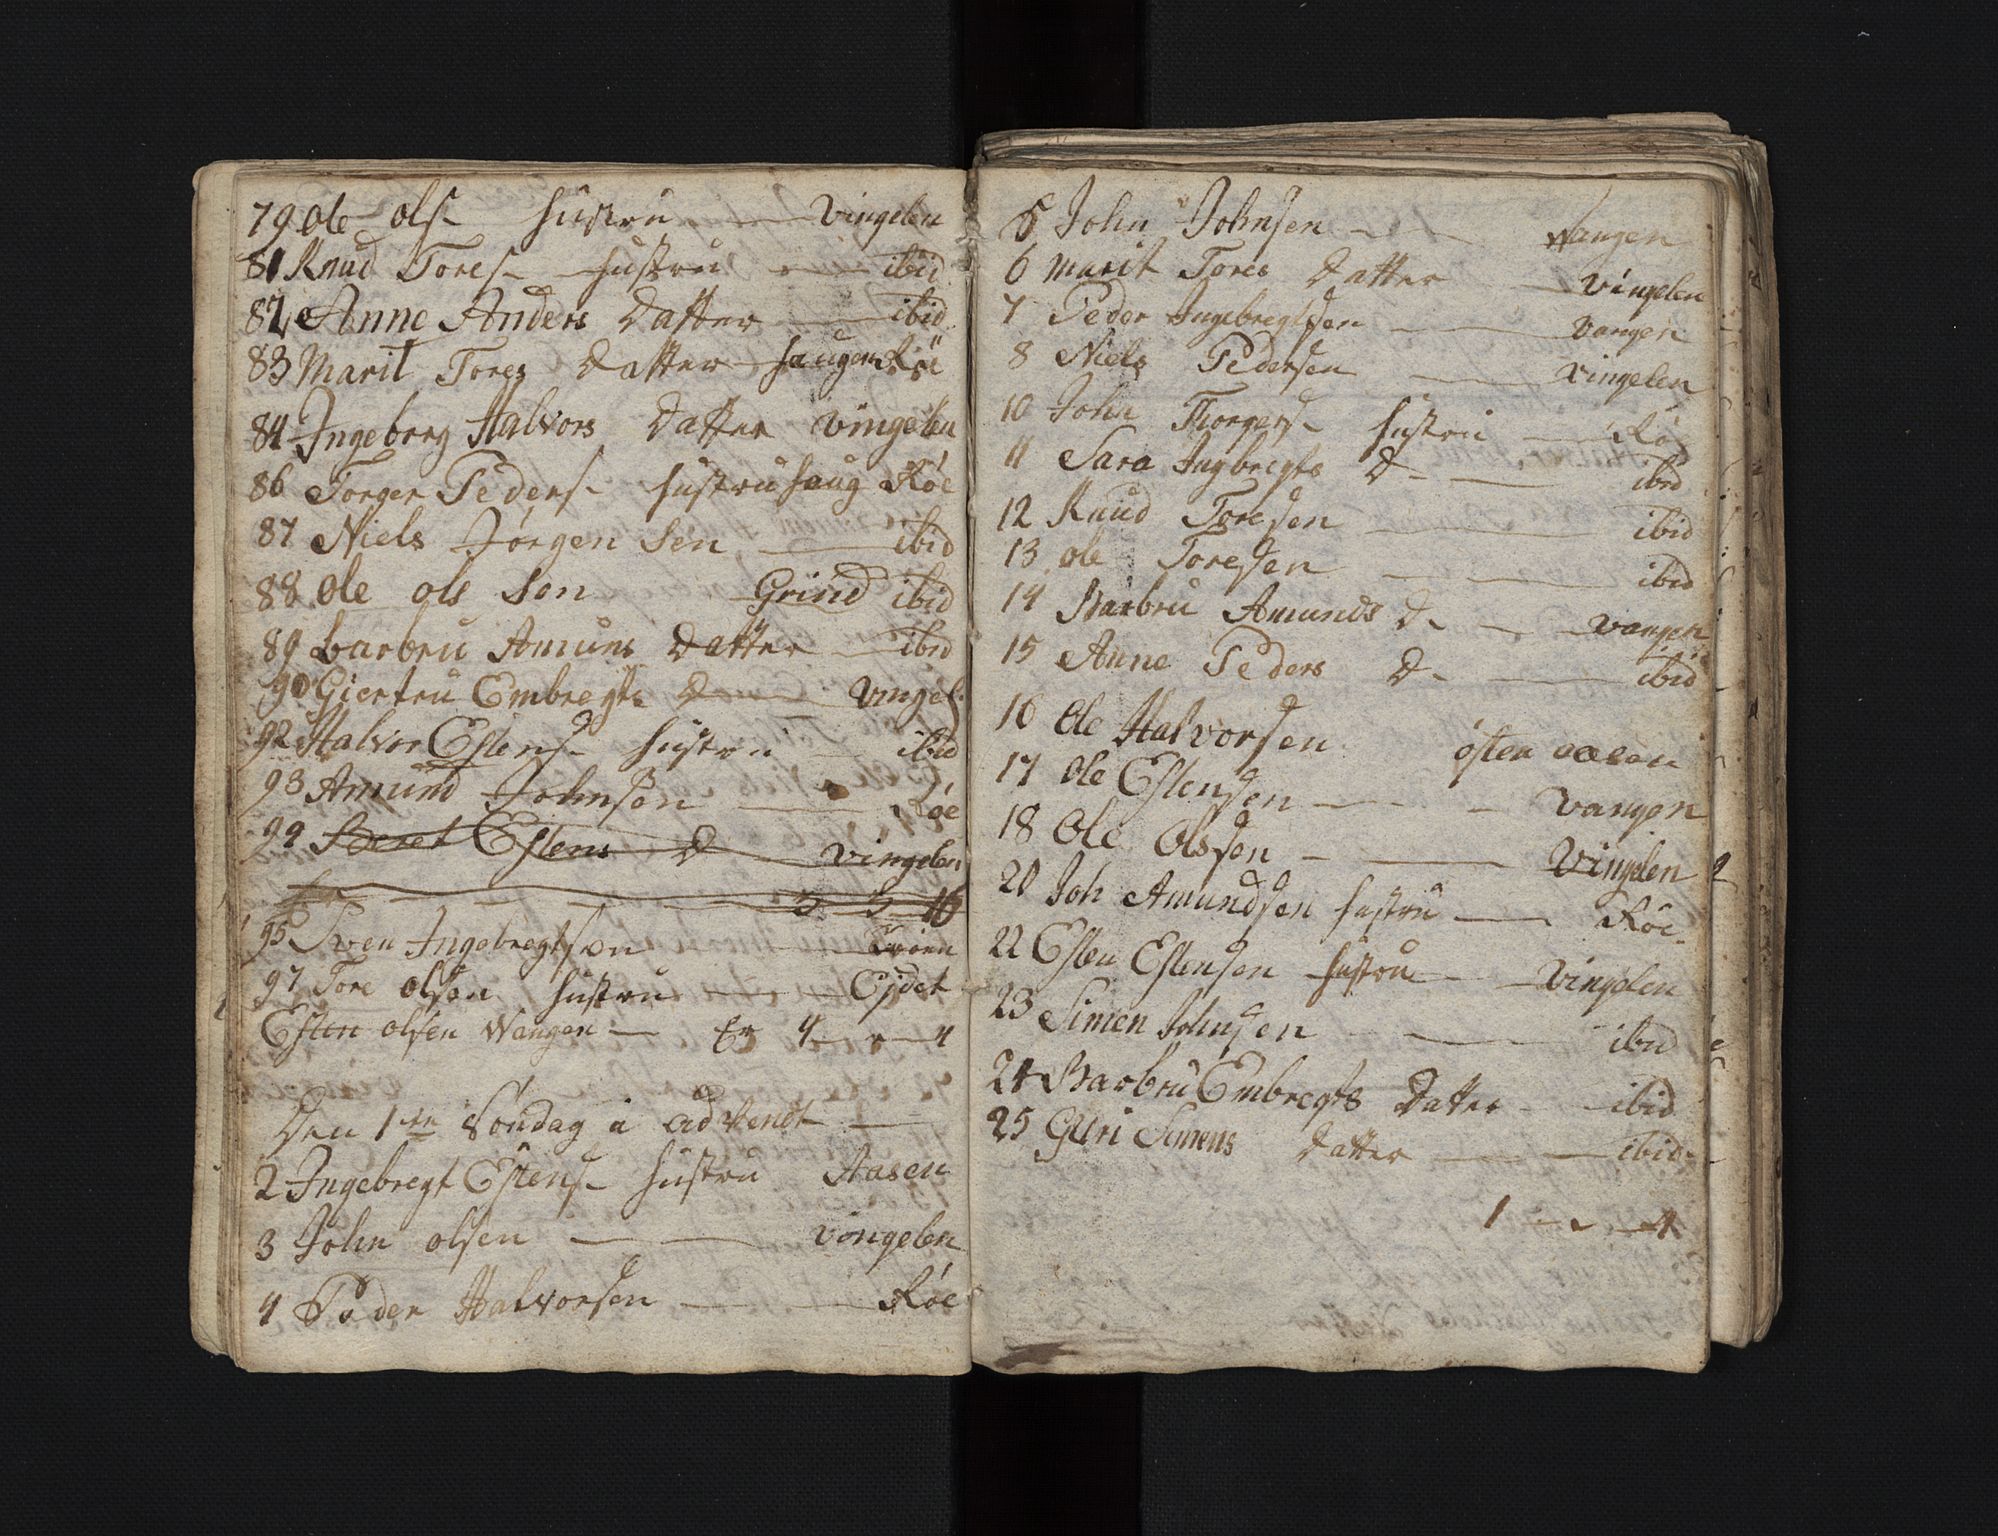 79 Ole ols- hustru Vingelen
81 Knud Tores- hustru ibid
82 Anne Anders Datter ibid
83 Marit Tores Datter haugen Röe
84 Ingeborg Halvors Datter Vingelen
86 Torger Peders- hustru haug Röe
87 Niels Jörgen Sen ibid
88 Ole ols Son Grind ibid
89 barbru Amuns Datter ibid
90 Giertru Embregts D Vingel
92 Halvor Estens- hustru ibid
93 Amund Johnsen Röe
94 Beret Estens D Vingelen
3 3 16
95 Sven Ingebregtsen
97 Tore olsen hustru Ejdet
Esten olsen Wangen Er 4 4
Den 1te Söndag i advendt
2 Ingebregt Estens- hustru Aasen
3 John olsen Vingelen
4 Peder Halvorsen Röe
5 John Johnsen Wangen
6 Marit Tores Datter Vingelen
7 Peder Ingebregtsen Vangen
8 Niels Pedersen Vingelen
10 John Thorgers- hustru Rö
11 Sara Ingbregts D- ibid
12 Knud Toresen ibid
13 Ole Toresen ibid
14 Barbru Amunds D- Vangen
15 Anne Peders D- ibid
16 Ole Halvorsen östen aasen
17 Ole Estensen Vangen
18 Ole Olssen Vingelen
20 Joh Amundsen hustru Röe
22 Esten Estensen hustru Vingelen
23 Simen Johnsen ibid
24 Barbru Embregts Datter ibid
25 Guri Simens Datter ibid
1 4